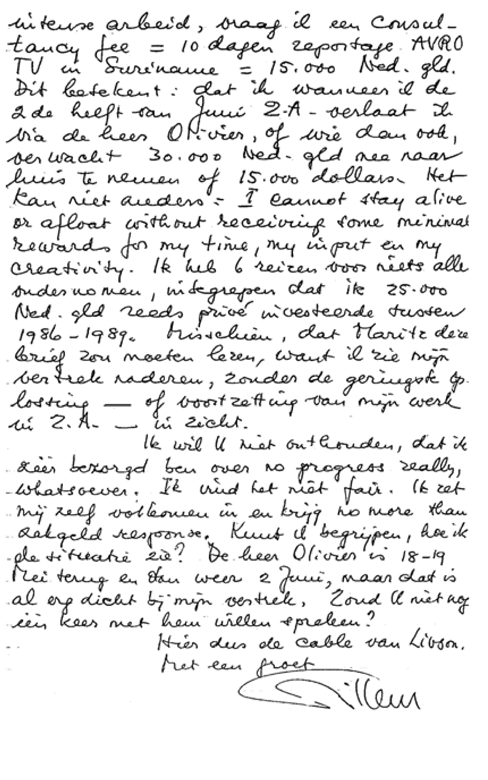 intense arbeid, vraag ik een Consul-
tancy fee = 10 dagen reportage AVRO
TV in Suriname = 15.000 Ned. gld.
Dit betekent: dat ik wanneer ik de
2de helft van Juni Z-A - verlaat ik
via de heer Olivier, of wie dan ook,
verwacht 30.000 Ned-gld mee naar
huis te nemen of 15.000 dollars. Het
kan niet anders - I cannot stay alive
or afloat without receiving some minimal
rewards for my time, my input en my
creativity. Ik heb 6 reizen voor niets alle
ondernomen, inbegrepen dat ik 25.000
Ned. gld reeds privé investeerde tussen
1986-1989. Misschien, dat Maritz deze
brief zou moeten lezen, want ik zie mijn
vertrek naderen, zonder de geringste op-
lossing — of voortzetting van mijn werk
in Z.A. — in zicht.
Ik wil U niet onthouden, dat ik
zéér bezorgd ben over no progress really,
whatsoever. Ik vind het niet fair. Ik zet
mij zelf volkomen in en krijg no more than
zakgeld response. Kunt U begrijpen, hoe ik
de situatie zie? De heer Olivier is 18-19
Mei terug en dan weer 2 Juni, maar dat is
al erg dicht bij mijn vertrek. Zoud U niet nog
één keer met hem willen spreken?
Hier dus de cable van
Met een groet
Willem